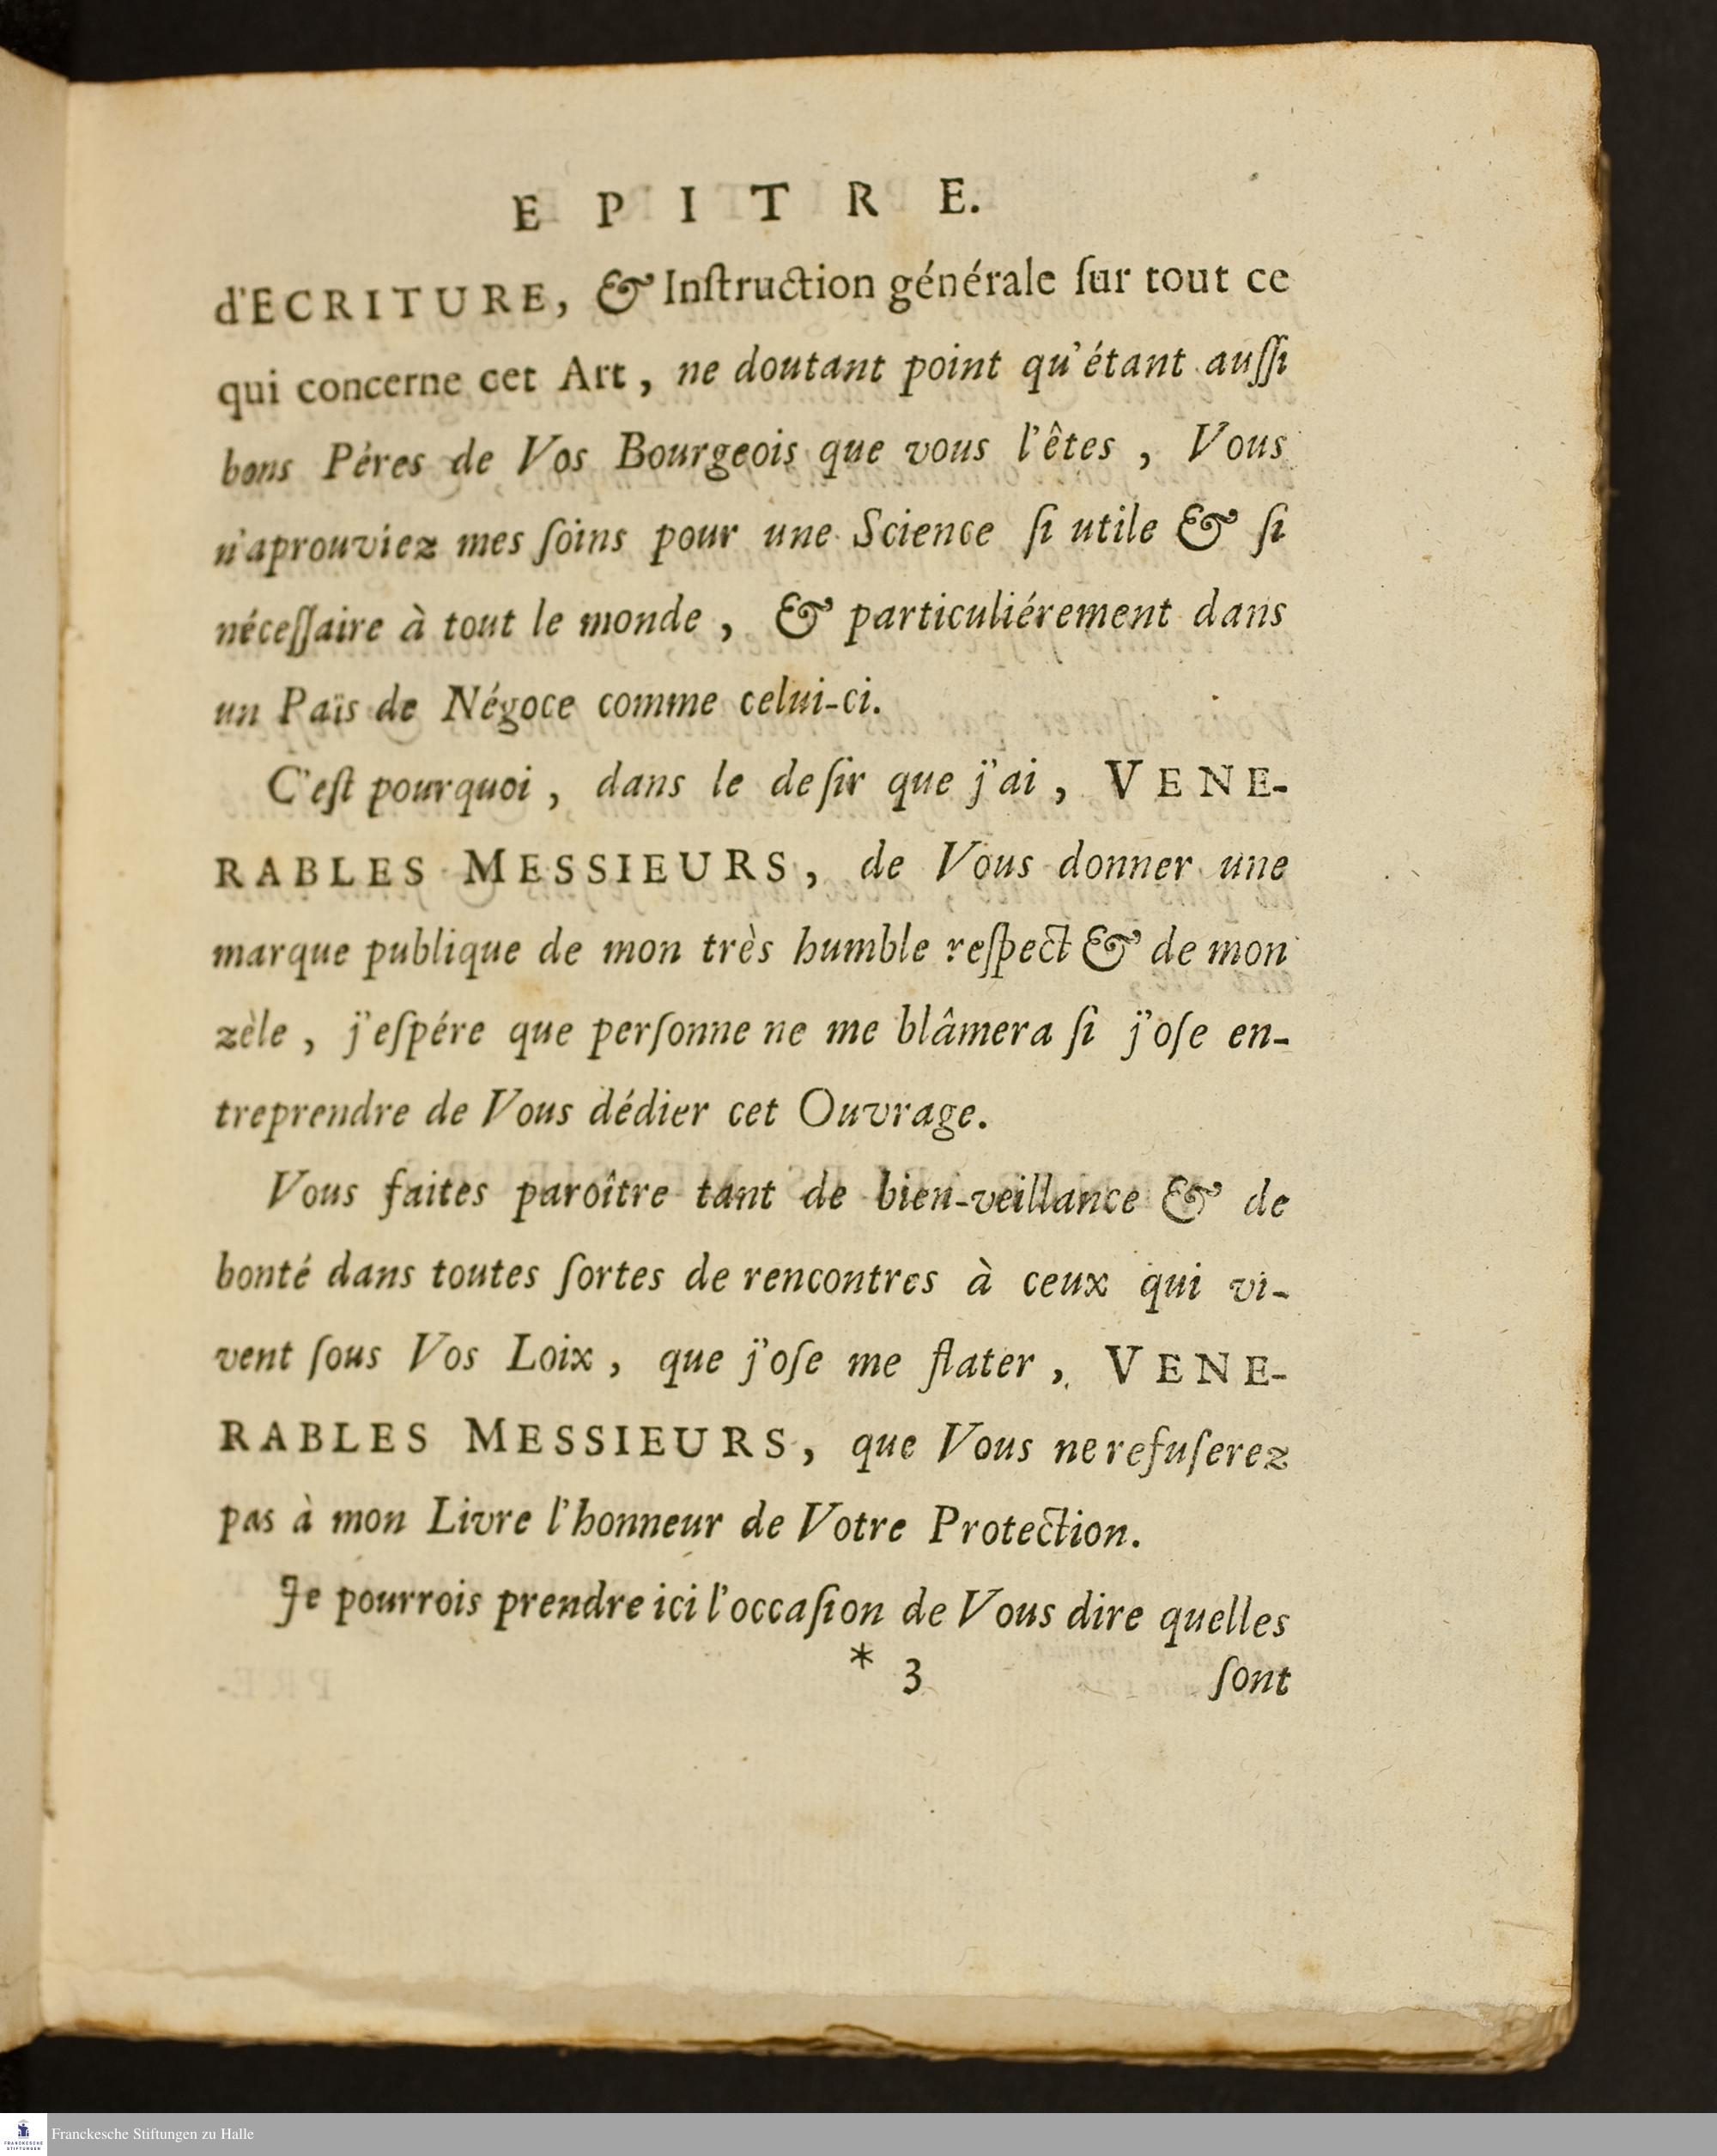 E P I T R E.
d'ECRITURE, & Inſtruction générale ſur tout ce
qui concerne cet Art, ne doutant point qu'étant auſſi
bons Péres de Vos Bourgeois que vous l'êtes, Vous
n'aprouviez mes ſoins pour une Science ſi utile & ſi
néceſſaire à tout le monde, & particuliérement dans
un Païs de Négoce comme celui-ci.
C'eſt pourquoi, dans le deſir que j'ai, VENE-
RABLES MESSIEURS, de Vous donner une
marque publique de mon très humble reſpect & de mon
zèle, j'eſpére que perſonne ne me blâmera ſi j'oſe en-
treprendre de Vous dédier cet Ouvrage.
Vous faites paroître tant de bien-veillance & de
bonté dans toutes ſortes de rencontres à ceux qui vi-
vent ſous Vos Loix, que j'oſe me flater, VENE-
RABLES MESSIEURS, que Vous ne refuſerez
pas à mon Livre l'honneur de Votre Protection.
Je pourrois prendre ici l'occaſion de Vous dire quelles
* 3 ſont
FRANCKESCHE STIFTUNGEN
Franckesche Stiftungen zu Halle